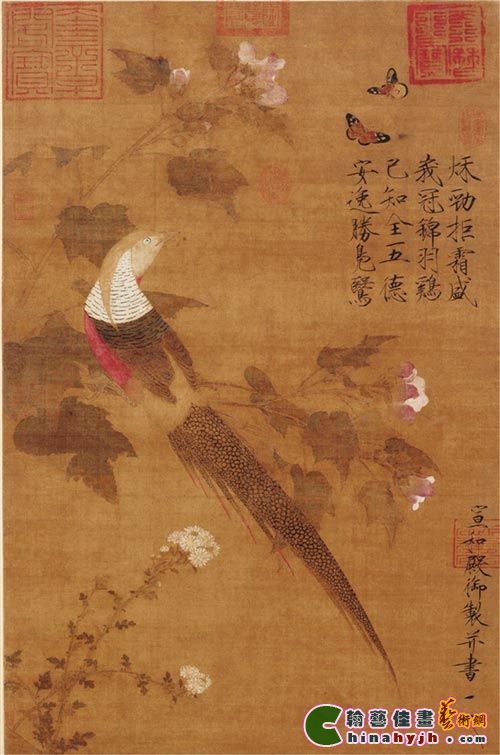 秋勁拒霜盛
峩冠錦羽鷄
已知全五德
安逸勝鳧鷖
宣和殿御製并書
翰藝佳畫藝術網
Chinahyjh.com